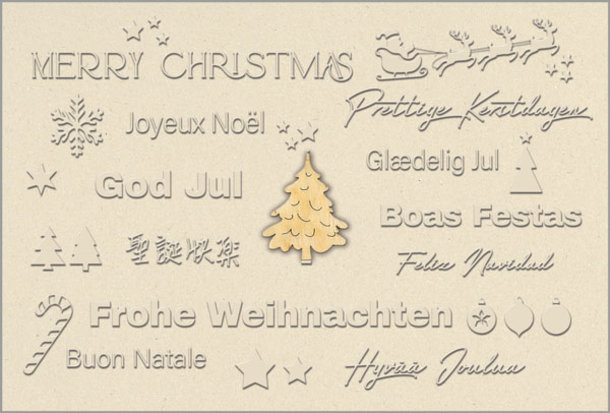 MERRY CHRISTMAS
Prettige Kerstdagen
Joyeux Noël
Glædelig Jul
God Jul
Boas Festas
聖誕快樂
Feliz Navidad
Frohe Weihnachten
Buon Natale
Hyvää Joulua